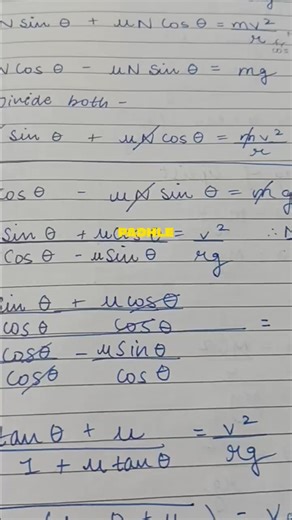 N sin θ + μN cos θ = mv²/r
N cos θ - μN sin θ = mg
Divide both -
sin θ + μN cos θ = mv²/r
cos θ - μN sin θ = mg
sin θ + μ cos θ / cos θ - μ sin θ = v²/rg
sin θ / cos θ + μ cos θ / cos θ =
cos θ / cos θ - μ sin θ / cos θ
tan θ + μ / 1 + μ tan θ = v²/rg